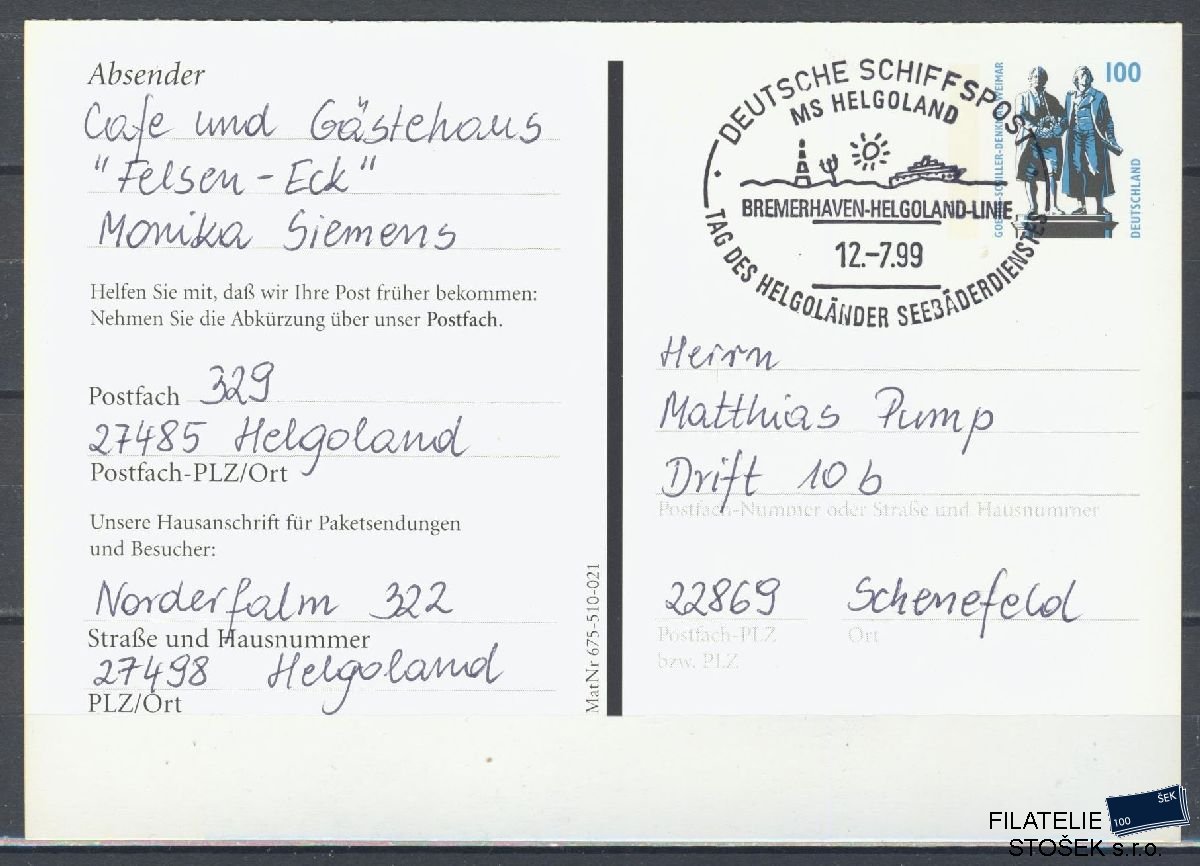 Absender
Cafe und Gästehaus
"Felsen-Eck"
Monika Siemens
Helfen Sie mit, daß wir Ihre Post früher bekommen:
Nehmen Sie die Abkürzung über unser Postfach.
Postfach 329
27485 Helgoland
Postfach-PLZ/Ort
Unsere Hausanschrift für Paketsendungen
und Besucher:
Norderfalm 322
Straße und Hausnummer
27498 Helgoland
PLZ/Ort
MatNr 675-510-021
DEUTSCHE SCHIFFSPOST
MS HELGOLAND
BREMERHAVEN-HELGOLAND-LINIE
12.-7.99
TAG DES HELGOLÄNDER SEEBÄDERDIENSTES
100
GOETHE-SCHILLER-DENKMAL WEIMAR
DEUTSCHLAND
Herrn
Matthias Pump
Drift 10 b
Postfach-Nummer oder Straße und Hausnummer
22869 Schenefeld
Postfach-PLZ Ort
bzw. PLZ
FILATELIE
STOŠEK s.r.o.
100 ŠEK